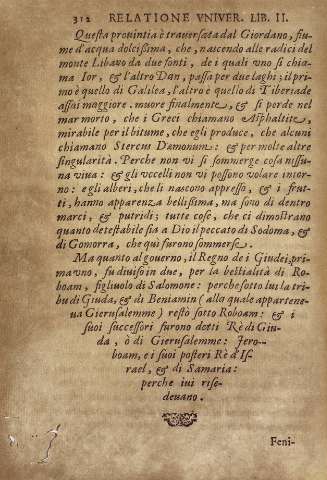 312 RELATIONE VNIVER. LIB. II.
Questa prouintia è trauersata dal Giordano, fiu-
me d'acqua dolcissima, che, nascendo alle radici del
monte Libano da due fonti, de i quali vno si chia-
ma Ior, & l'altro Dan, passa per due laghi; il pri-
mo è quello di Galilea, l'altro è quello di Tiberiade
assai maggiore. muore finalmente, & si perde nel
mar morto, che i Greci chiamano Asphaltite,
mirabile per il bitume, che egli produce, che alcuni
chiamano Stercus Dæmonum: & per molte altre
singularità. Perche non vi si sommerge cosa nissu-
na viua: & gli vccelli non vi possono volare intor-
no: e gli alberi, che li nascono appresso, & i frut-
ti, hanno apparenza bellissima, ma sono di dentro
marci, & putridi; tutte cose, che ci dimostrano
quanto detestabile sia a Dio il peccato di Sodoma, &
di Gomorra, che quì furono sommerse.
Ma quanto al gouerno, il Regno de i Giudei, pri-
ma vno, fu diuiso in due, per la bestialità di Ro-
boam, figliuolo di Salomone: perche sotto lui la tri-
bu di Giuda, & di Beniamin (alla quale appartene-
ua Gierusalemme) restò sotto Roboam: & i
suoi successori furono detti Rè di Giu-
da, ò di Gierusalemme: Jero-
boam, e i suoi posteri Rè d'Is-
rael, & di Samaria:
perche iui rise-
deuano.
Feni-